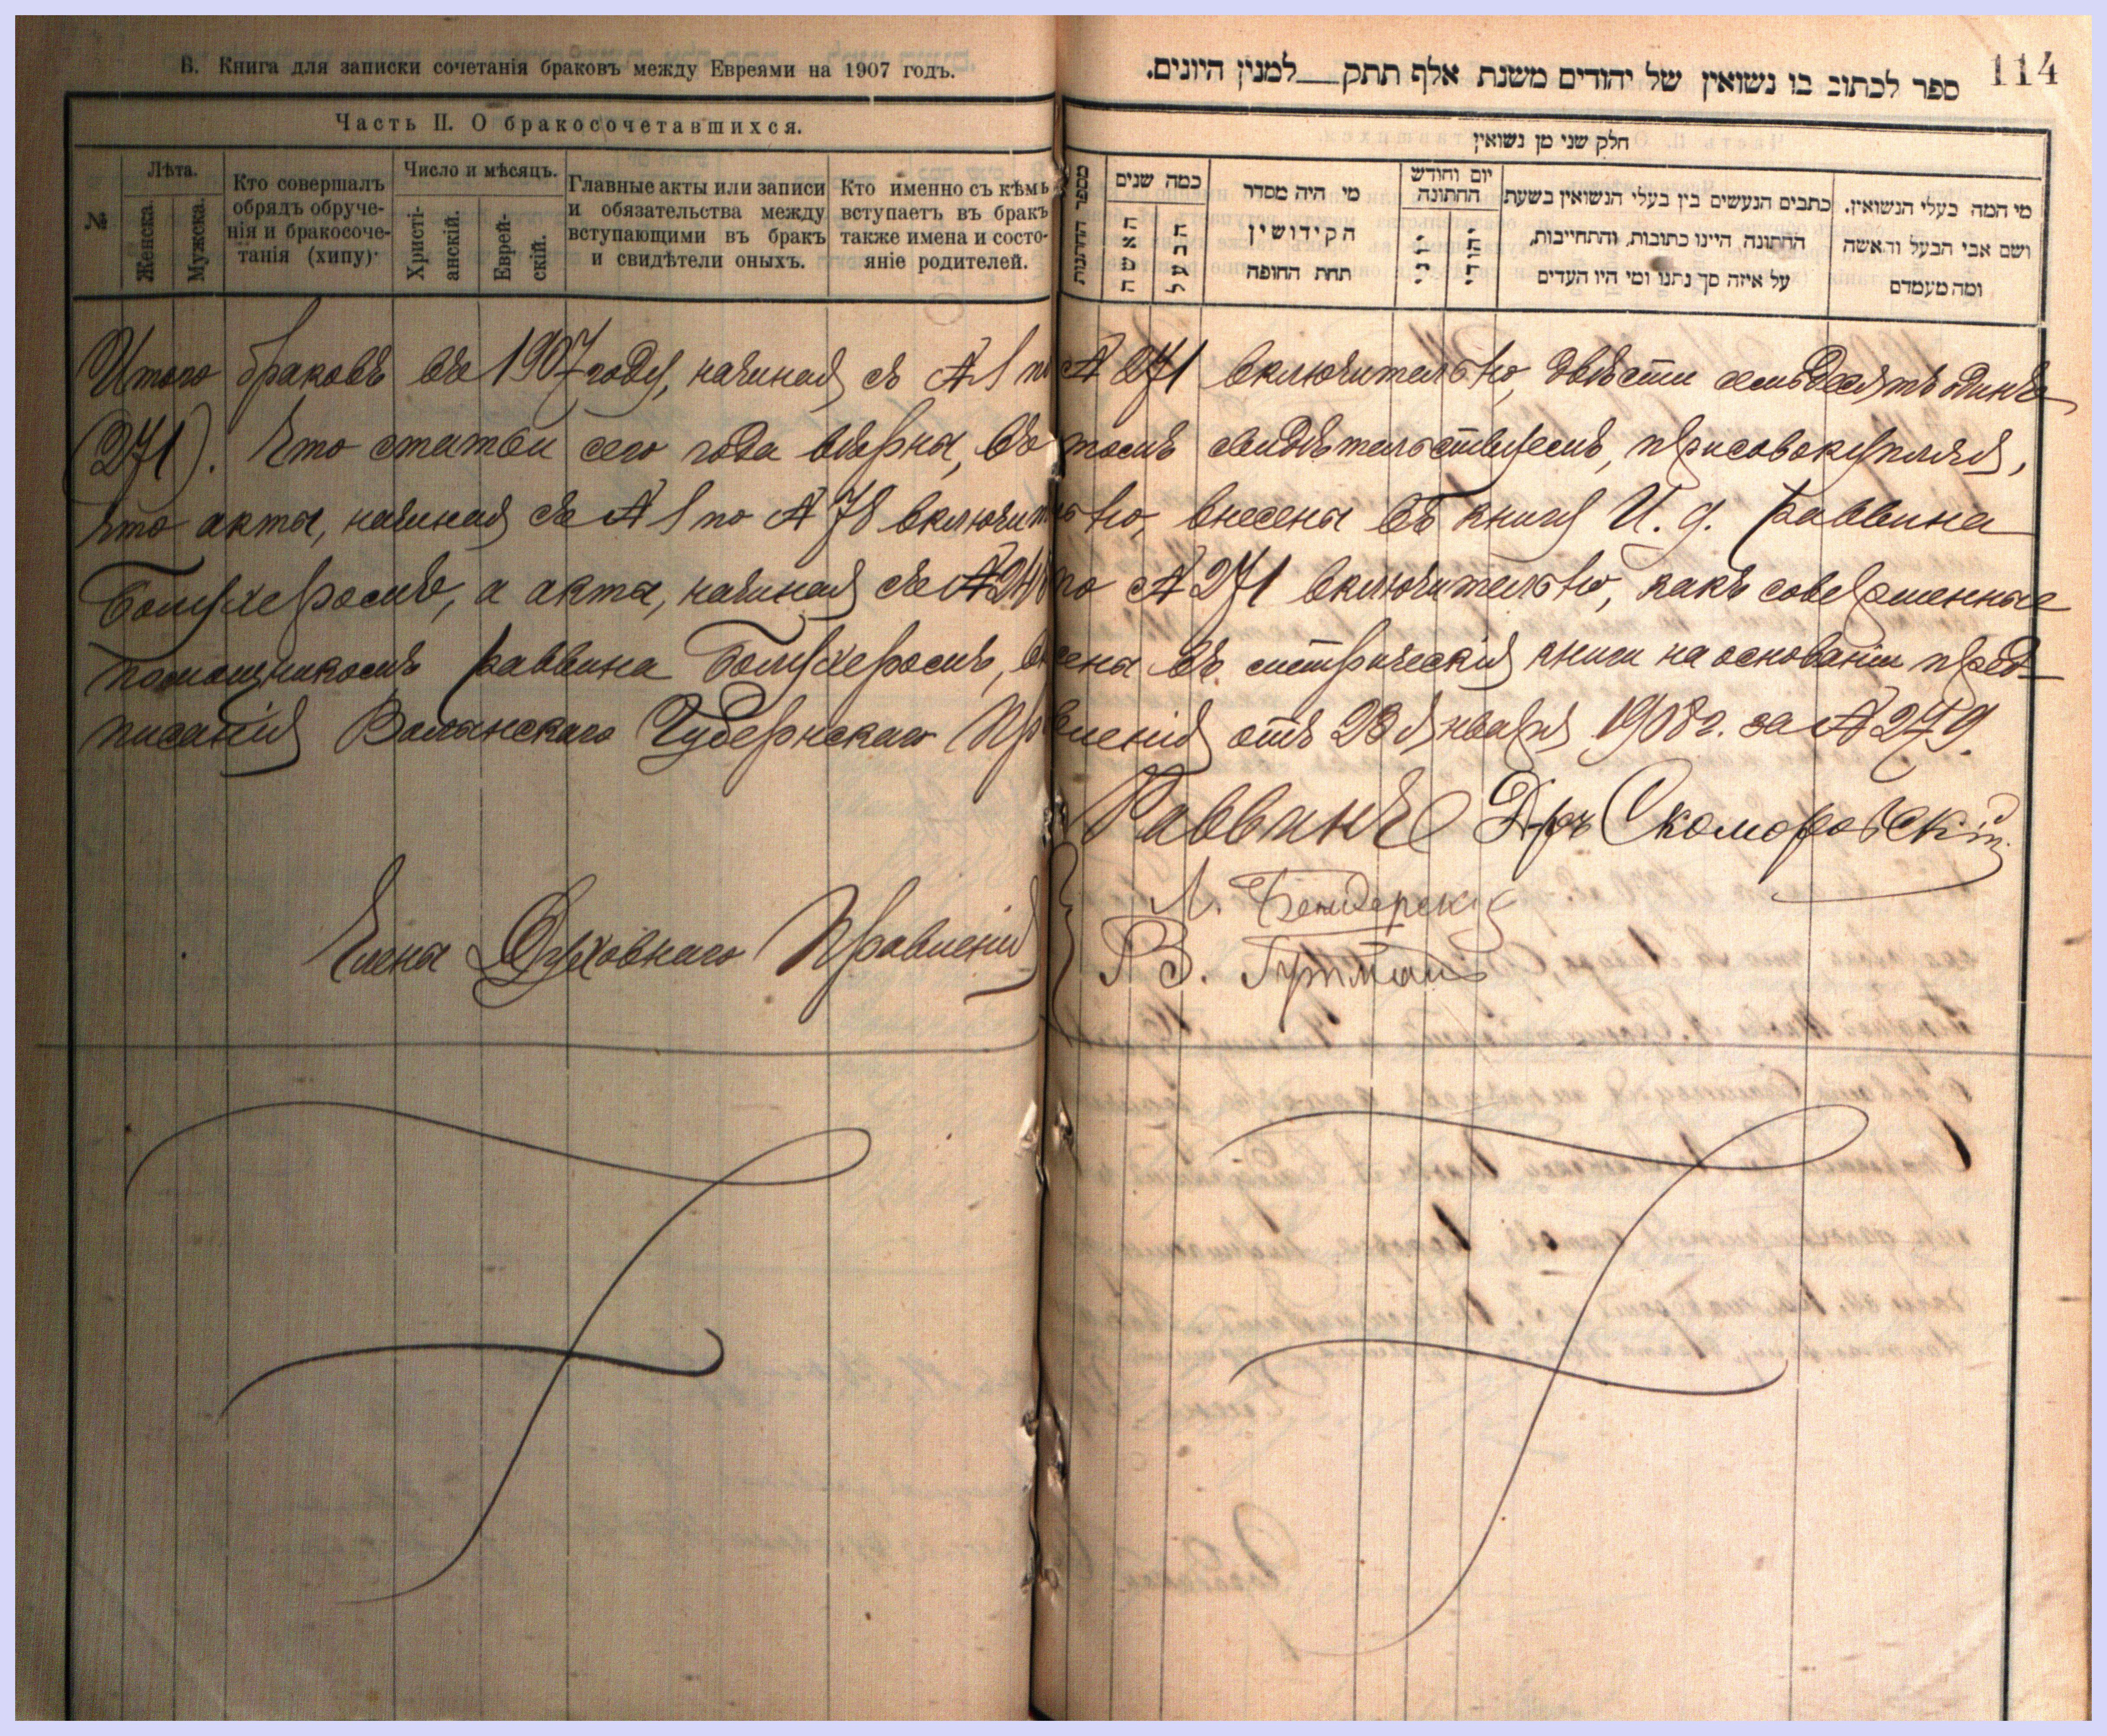 В. Книга для записки сочетанія браковъ между Евреями на 1907 годъ.
Часть II. О бракосочетавшихся.
№
Лѣта.
Женска.
Мужска.
Кто совершалъ
обрядъ обруче-
нія и бракосоче-
танія (хипу)·
Число и мѣсяцъ.
Христі-
анскій.
Еврей-
скій.
Главные акты или записи
и обязательства между
вступающими въ бракъ
и свидѣтели оныхъ.
Кто именно съ кѣмъ
вступаетъ въ бракъ
также имена и состо-
яніе родителей.
114
ספר לכתוב בו נשואין של יהודים משנת אלף תתק__למנין היונים.
חלק שני מן נשואין
מספר החתנות
כמה שנים
האשה
הבעל
מי היה מסדר
הקידושין
תחת החופה
יום וחודש
החתונה
יוני
יהודי
כתבים הנעשים בין בעלי הנשואין בשעת
החתונה היינו כתובות, והתחייבות,
על איזה סך נתנו ומי היו העדים
מי המה בעלי הנשואין.
ושם אבי הבעל והאשה
ומה מעמדם
Итого браковъ въ 1907 году, начиная съ № 1 по № 271 включительно, двѣсти семьдесятъ одинъ
(271). Что статьи сего года вѣрны, въ томъ свидѣтельствуемъ, присовокупляя,
что акты, начиная съ № 1 по № 78 включительно, внесены въ книгу И. д. раввина
а акты, начиная съ № по № 271 включительно, какъ совершенные
помощникомъ раввина внесены въ метрическія книги на основаніи пред-
писанія Волынскаго Губернскаго Правленія отъ 28 января 1908 г. за № 279.
Раввинъ Д-ръ Скоморовскій
Члены Духовнаго Правленія
Л. Бендерскій
В. Гутманъ